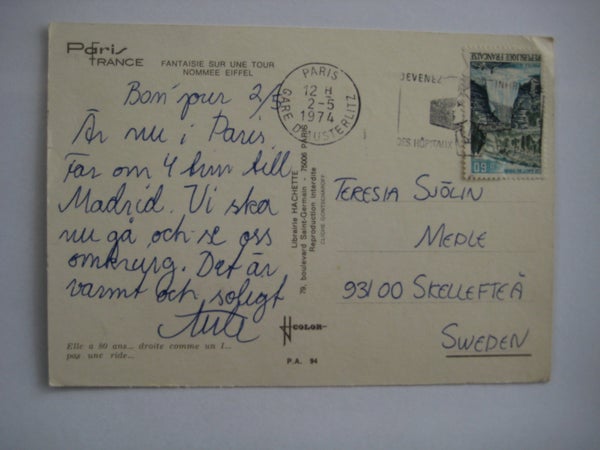 Paris
FRANCE
FANTAISIE SUR UNE TOUR
NOMMEE EIFFEL
Bon´jour 2/5
Är nu i Paris
Far om 4 tim till
Madrid. Vi ska
nu gå och se oss
omkring. Det är
varmt och soligt
Elle a 80 ans... droite comme un I...
pas une ride...
PARIS
12 H
2-5
1974
GARE D'AUSTERLITZ
DEVENEZ
DES HÔPITAUX
REPUBLIQUE FRANÇAISE
0,60
Librairie HACHETTE
79, boulevard Saint-Germain - 75006 PARIS
Reproduction interdite
CLICHÉ GONTSCHAROFF
COLOR
P.A. 94
TERESIA SJÖLIN
MEDLE
93100 SKELLEFTEÅ
SWEDEN